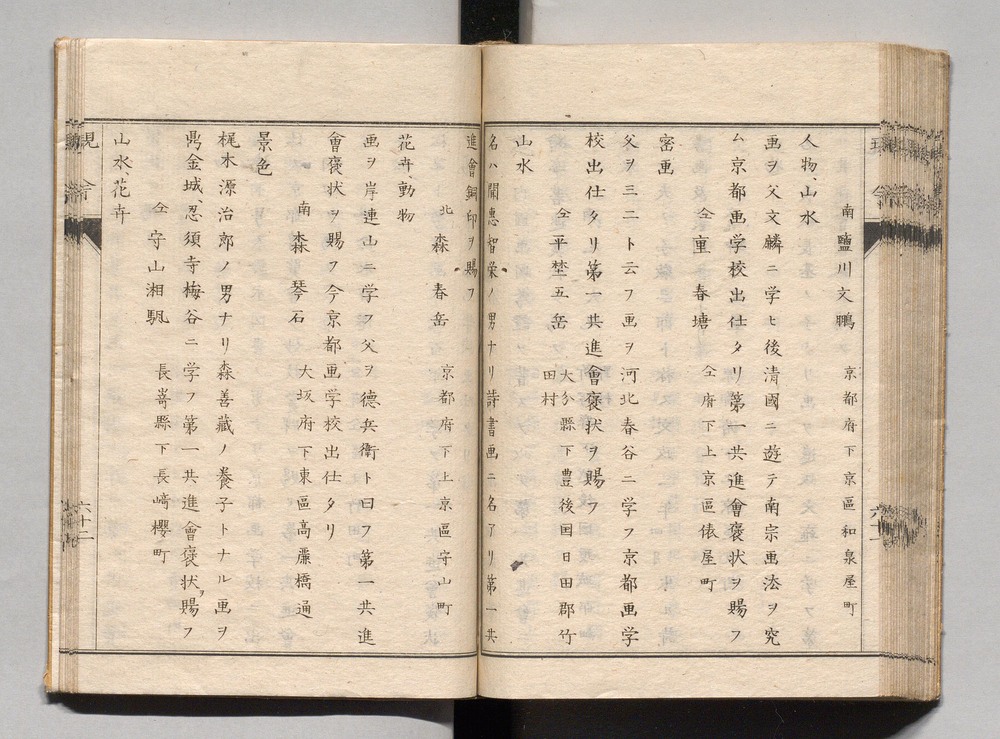 人物、山水
南 鹽川文鵬 京都府下京區和泉屋町
画ヲ父文麟ニ学ヒ後清國ニ遊テ南宗画法ヲ究
ム京都画学校出仕タリ第一共進會褒状ヲ賜フ
仝 重春塘 仝府下上京區俵屋町
密画
父ヲ三二ト云フ画ヲ河北春谷ニ学フ京都画学
校出仕タリ第一共進會褒状ヲ賜フ
仝 平埜五岳 大分縣下豊後国日田郡竹
田村
山水
名ハ聞恵智榮ノ男ナリ詩書画ニ名アリ第一共
進會銅印ヲ賜フ
北 森春岳 京都府下上京區守山町
花卉、動物
画ヲ岸連山ニ学フ父ヲ德兵衛ト曰フ第一共進
會褒状ヲ賜フ今京都画学校出仕タリ
南 森琴石 大坂府下東區高麗橋通
景色
梶木源治郎ノ男ナリ森善蔵ノ養子トナル画ヲ
鼎金城、忍須寺梅谷ニ学フ第一共進會褒状ヲ賜フ
仝 守山湘颿 長嵜縣下長崎櫻町
山水、花卉
六十二